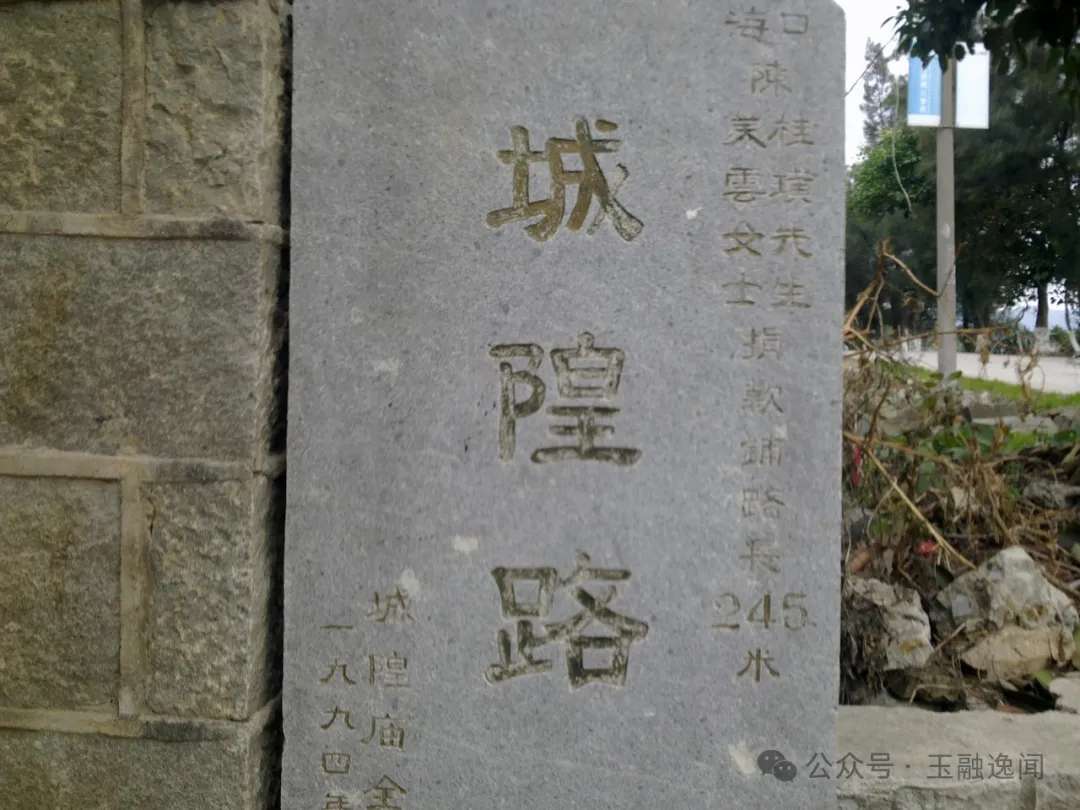 海口
陈
桂琪先生
芙雲女士
捐款铺路长
245
米
城隍路
城隍庙全
一九九四年
公众号·玉融逸闻